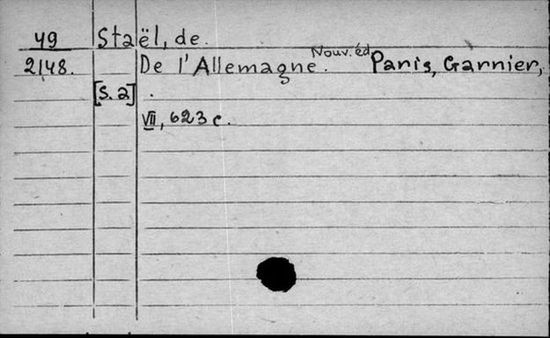 49 Staël, de.
2148. De l'Allemagne. Nouv. éd. Paris, Garnier,
[s. a].
VII, 623 c.